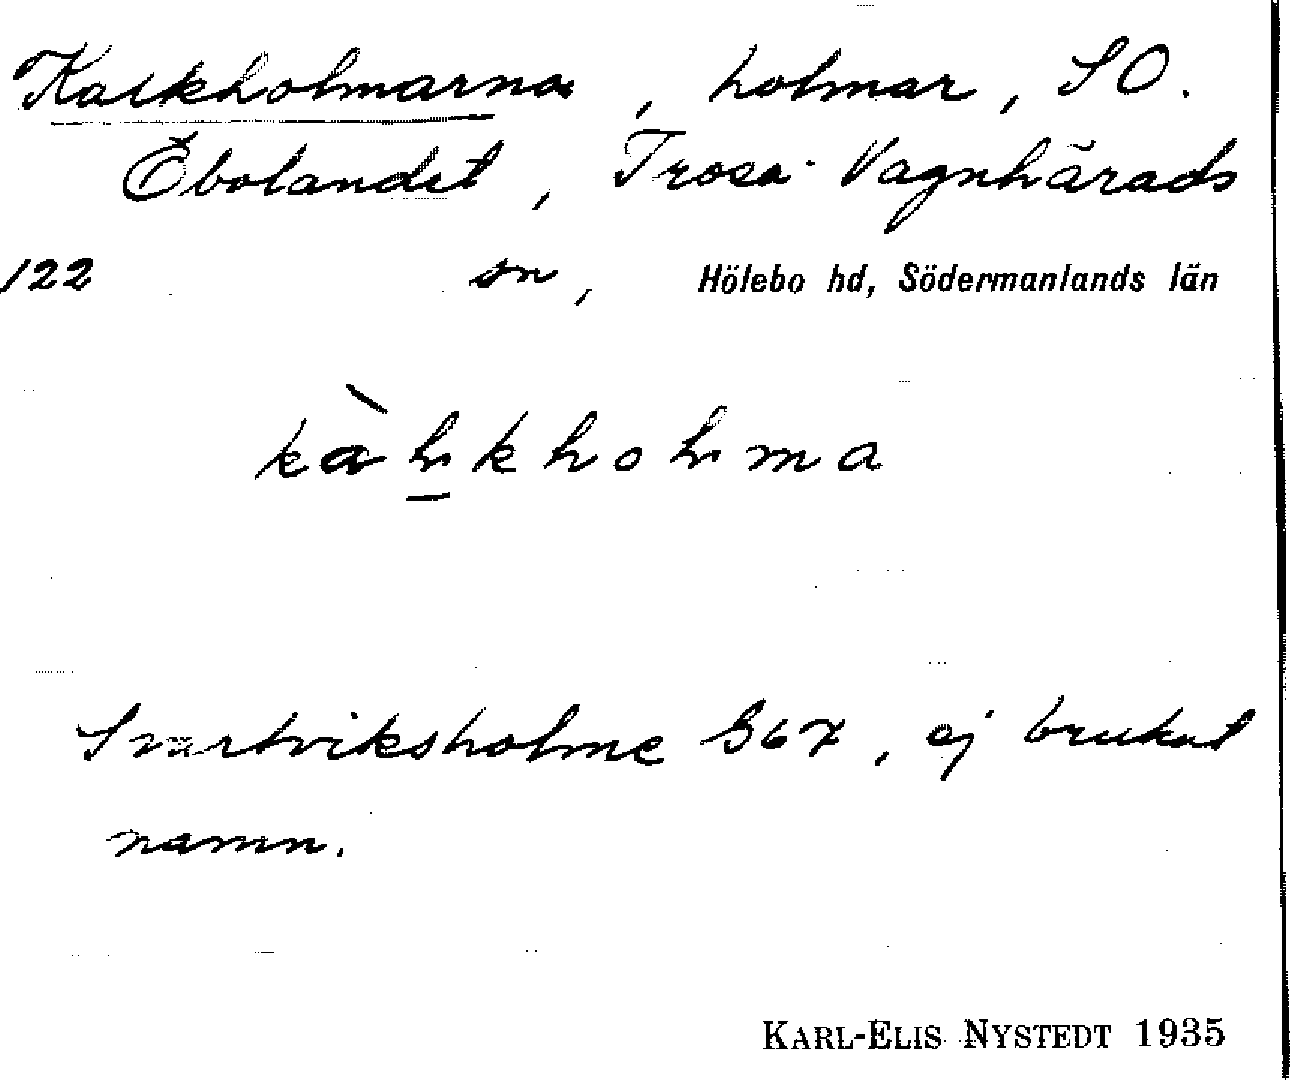 Kalkholmarna, holmar, SO.
Öbolandet, Trosa-Vagnhärads
122 sn, Hölebo hd, Södermanlands län
Svartviksholme G67, ej brukat
namn.
KARL-ELIS NYSTEDT 1935